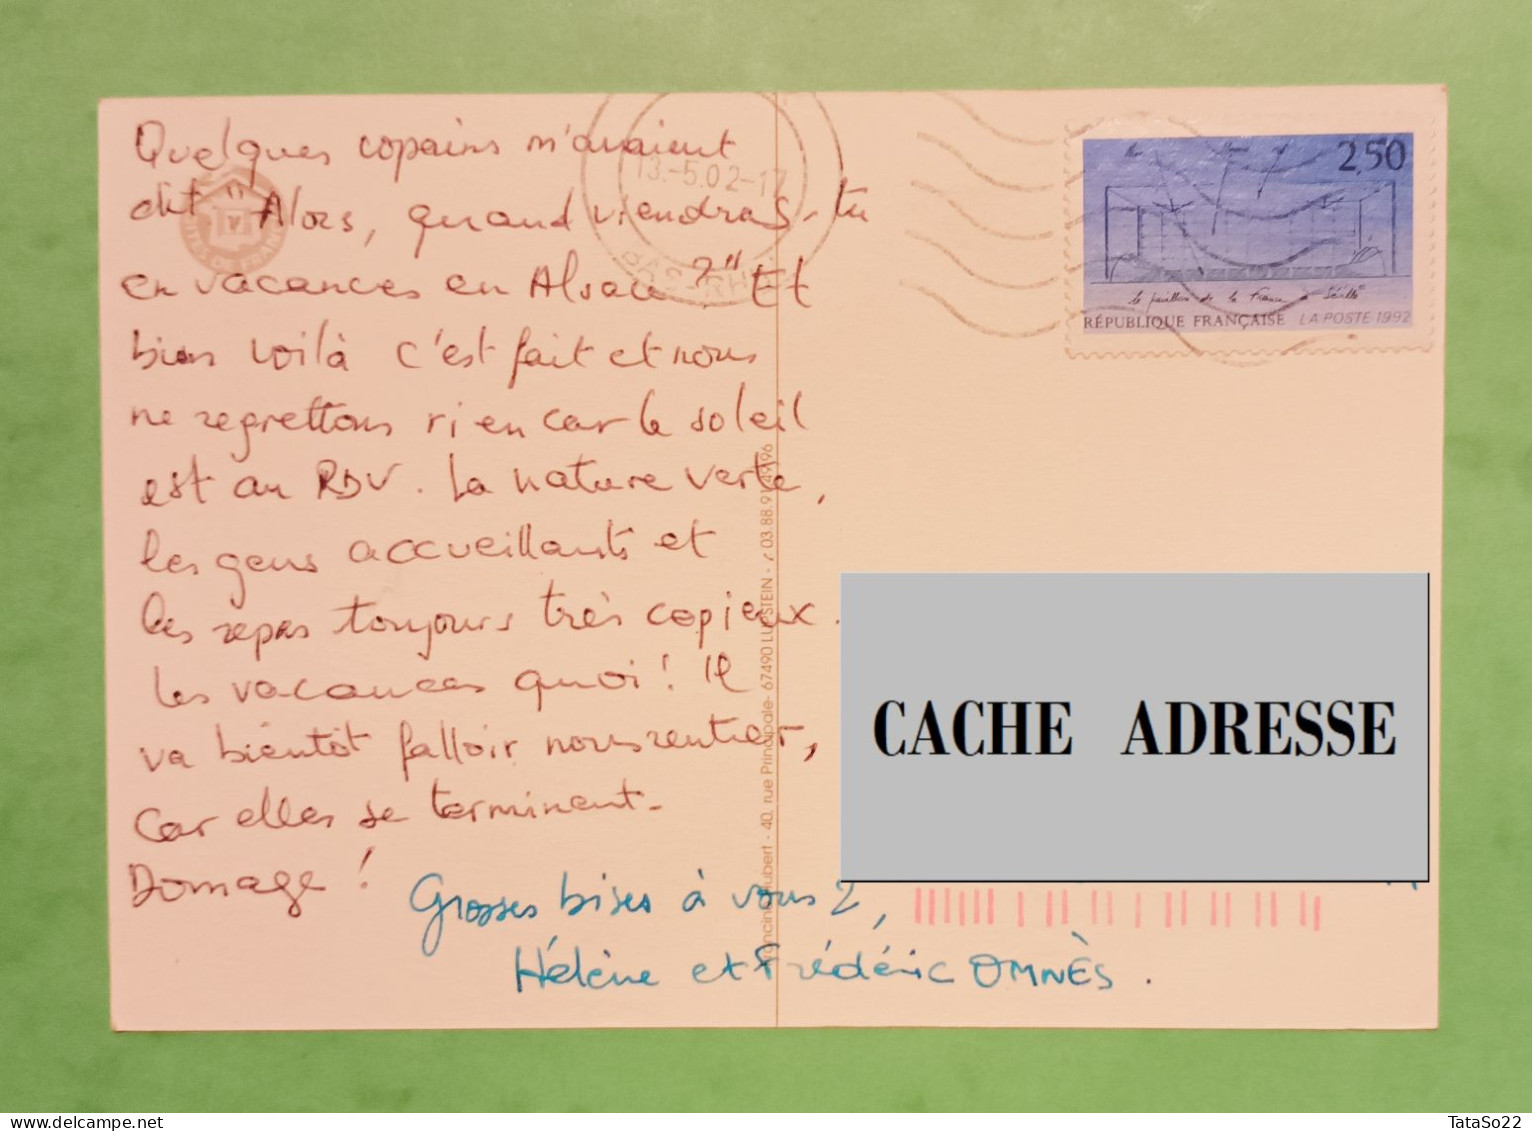 Quelques copains m'avaient
dit "Alors, quand viendras-tu
en vacances en Alsace ?" Et
bien voilà c'est fait et nous
ne regrettons rien car le soleil
est au RDV. La nature verte,
les gens accueillants et
les repas toujours très copieux.
Les vacances quoi ! Il
va bientôt falloir nous rentrer,
car elles se terminent.
Domage !
Grosses bises à vous 2,
Hélène et Frédéric OMNÈS.
13.-5.02-17
BAS RHIN
40, rue Principale- 67490 LUPSTEIN -
2,50
le pavillon de la France à Séville
RÉPUBLIQUE FRANÇAISE LA POSTE 1992
CACHE ADRESSE
TataSo22